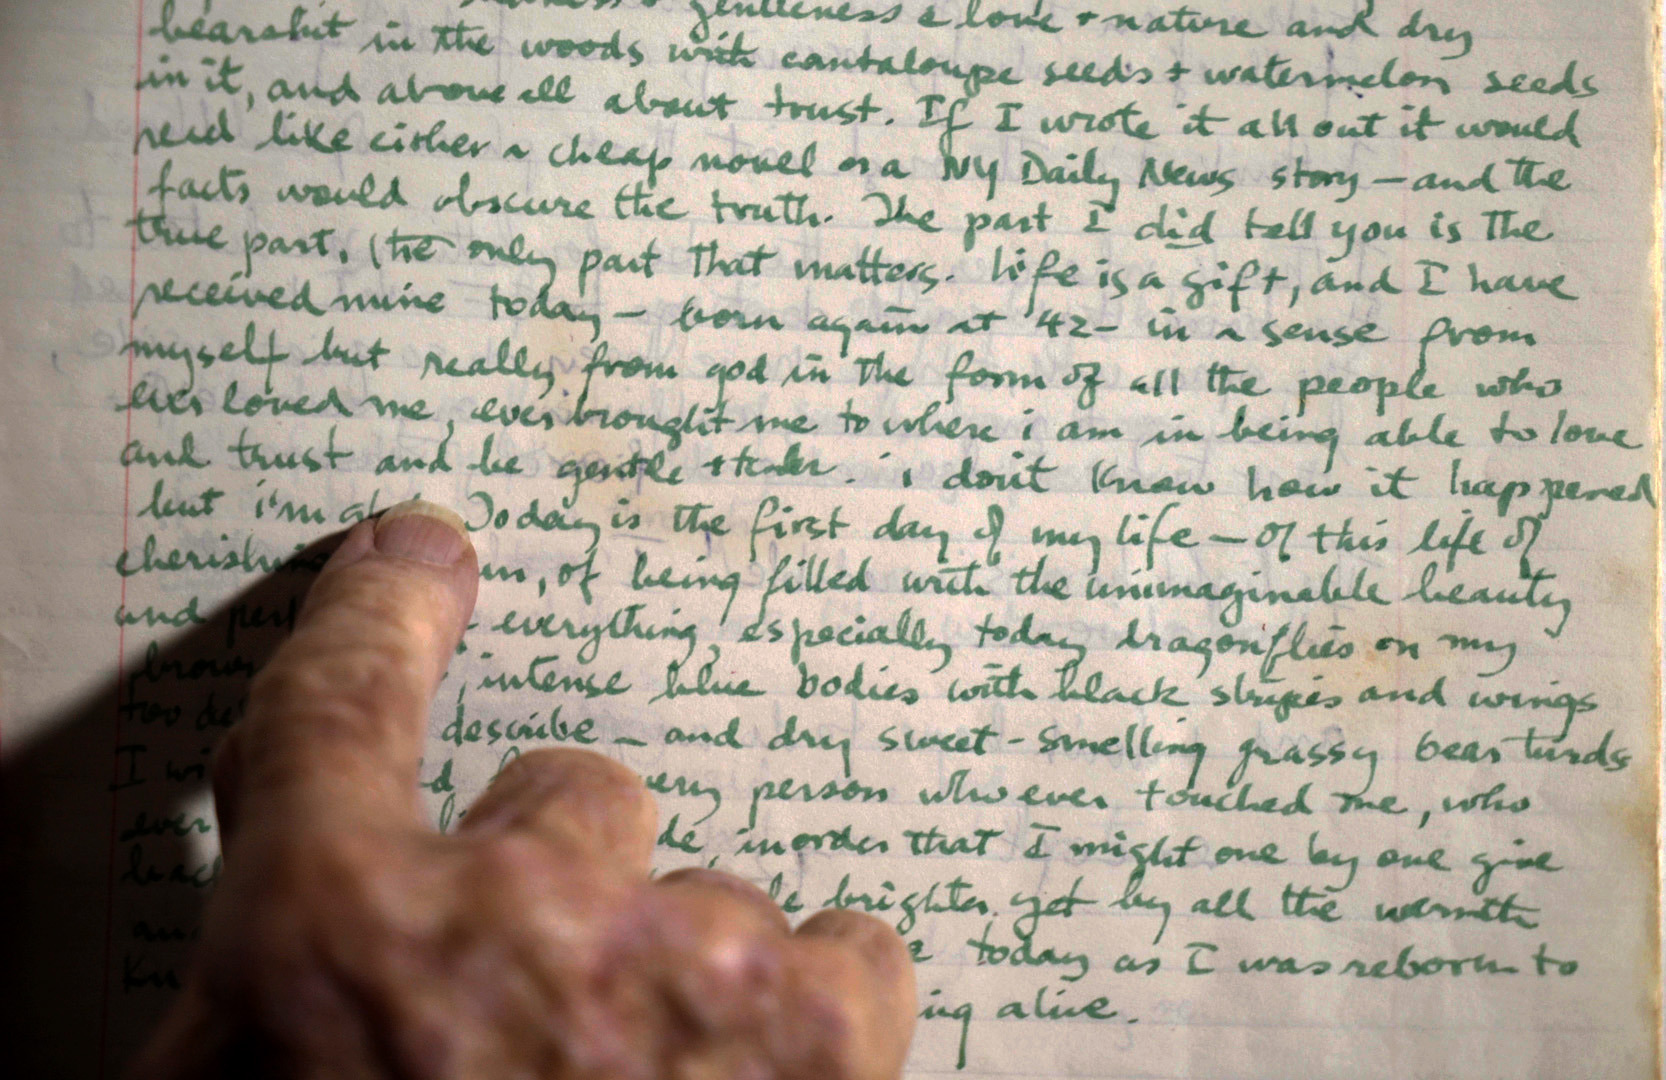 gentleness & love + nature and dry
bearshit in the woods with cantaloupe seeds + watermelon seeds
in it, and above all about trust. If I wrote it all out it would
read like either a cheap novel or a NY Daily News story — and the
facts would obscure the truth. The part I did tell you is the
true part, (the only part that matters. Life is a gift, and I have
received mine today — born again at 42 - in a sense from
myself but really from god in the form of all the people who
ever loved me, ever brought me to where i am in being able to love
and trust and be gentle + tender. i don't know how it happened
but i'm Today is the first day of my life — of this life of
of being filled with the unimaginable beauty
and everything, especially today dragonflies on my
intense blue bodies with black stripes and wings
too describe — and dry sweet-smelling grassy bear turds
I person who ever touched me, who
ever in order that I might one by one give
back brighter yet by all the warmth
today as I was reborn to
alive.